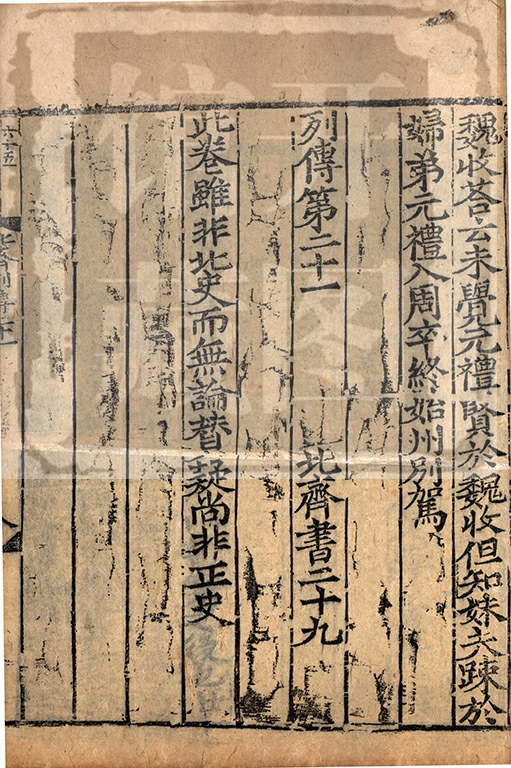 魏收荅云未覺元禮賢於魏收但知妹夫踈於
婦弟元禮入周卒終始州別駕
列傳第二十一 北齊書二十九
此卷雖非北史而無論替疑尚非正史